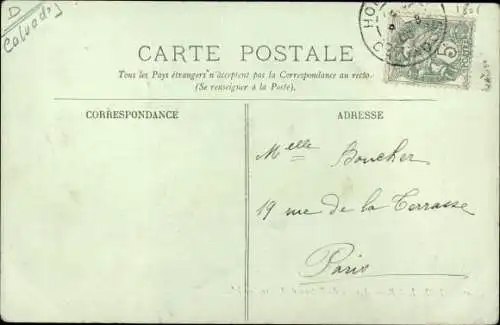 D
Calvados
CARTE POSTALE
Tous les Pays étrangers n'acceptent pas la Correspondance au recto
(Se renseigner à la Poste).
CORRESPONDANCE
ADRESSE
Melle Boucher
19 rue de la Terrasse
Paris
HO
5